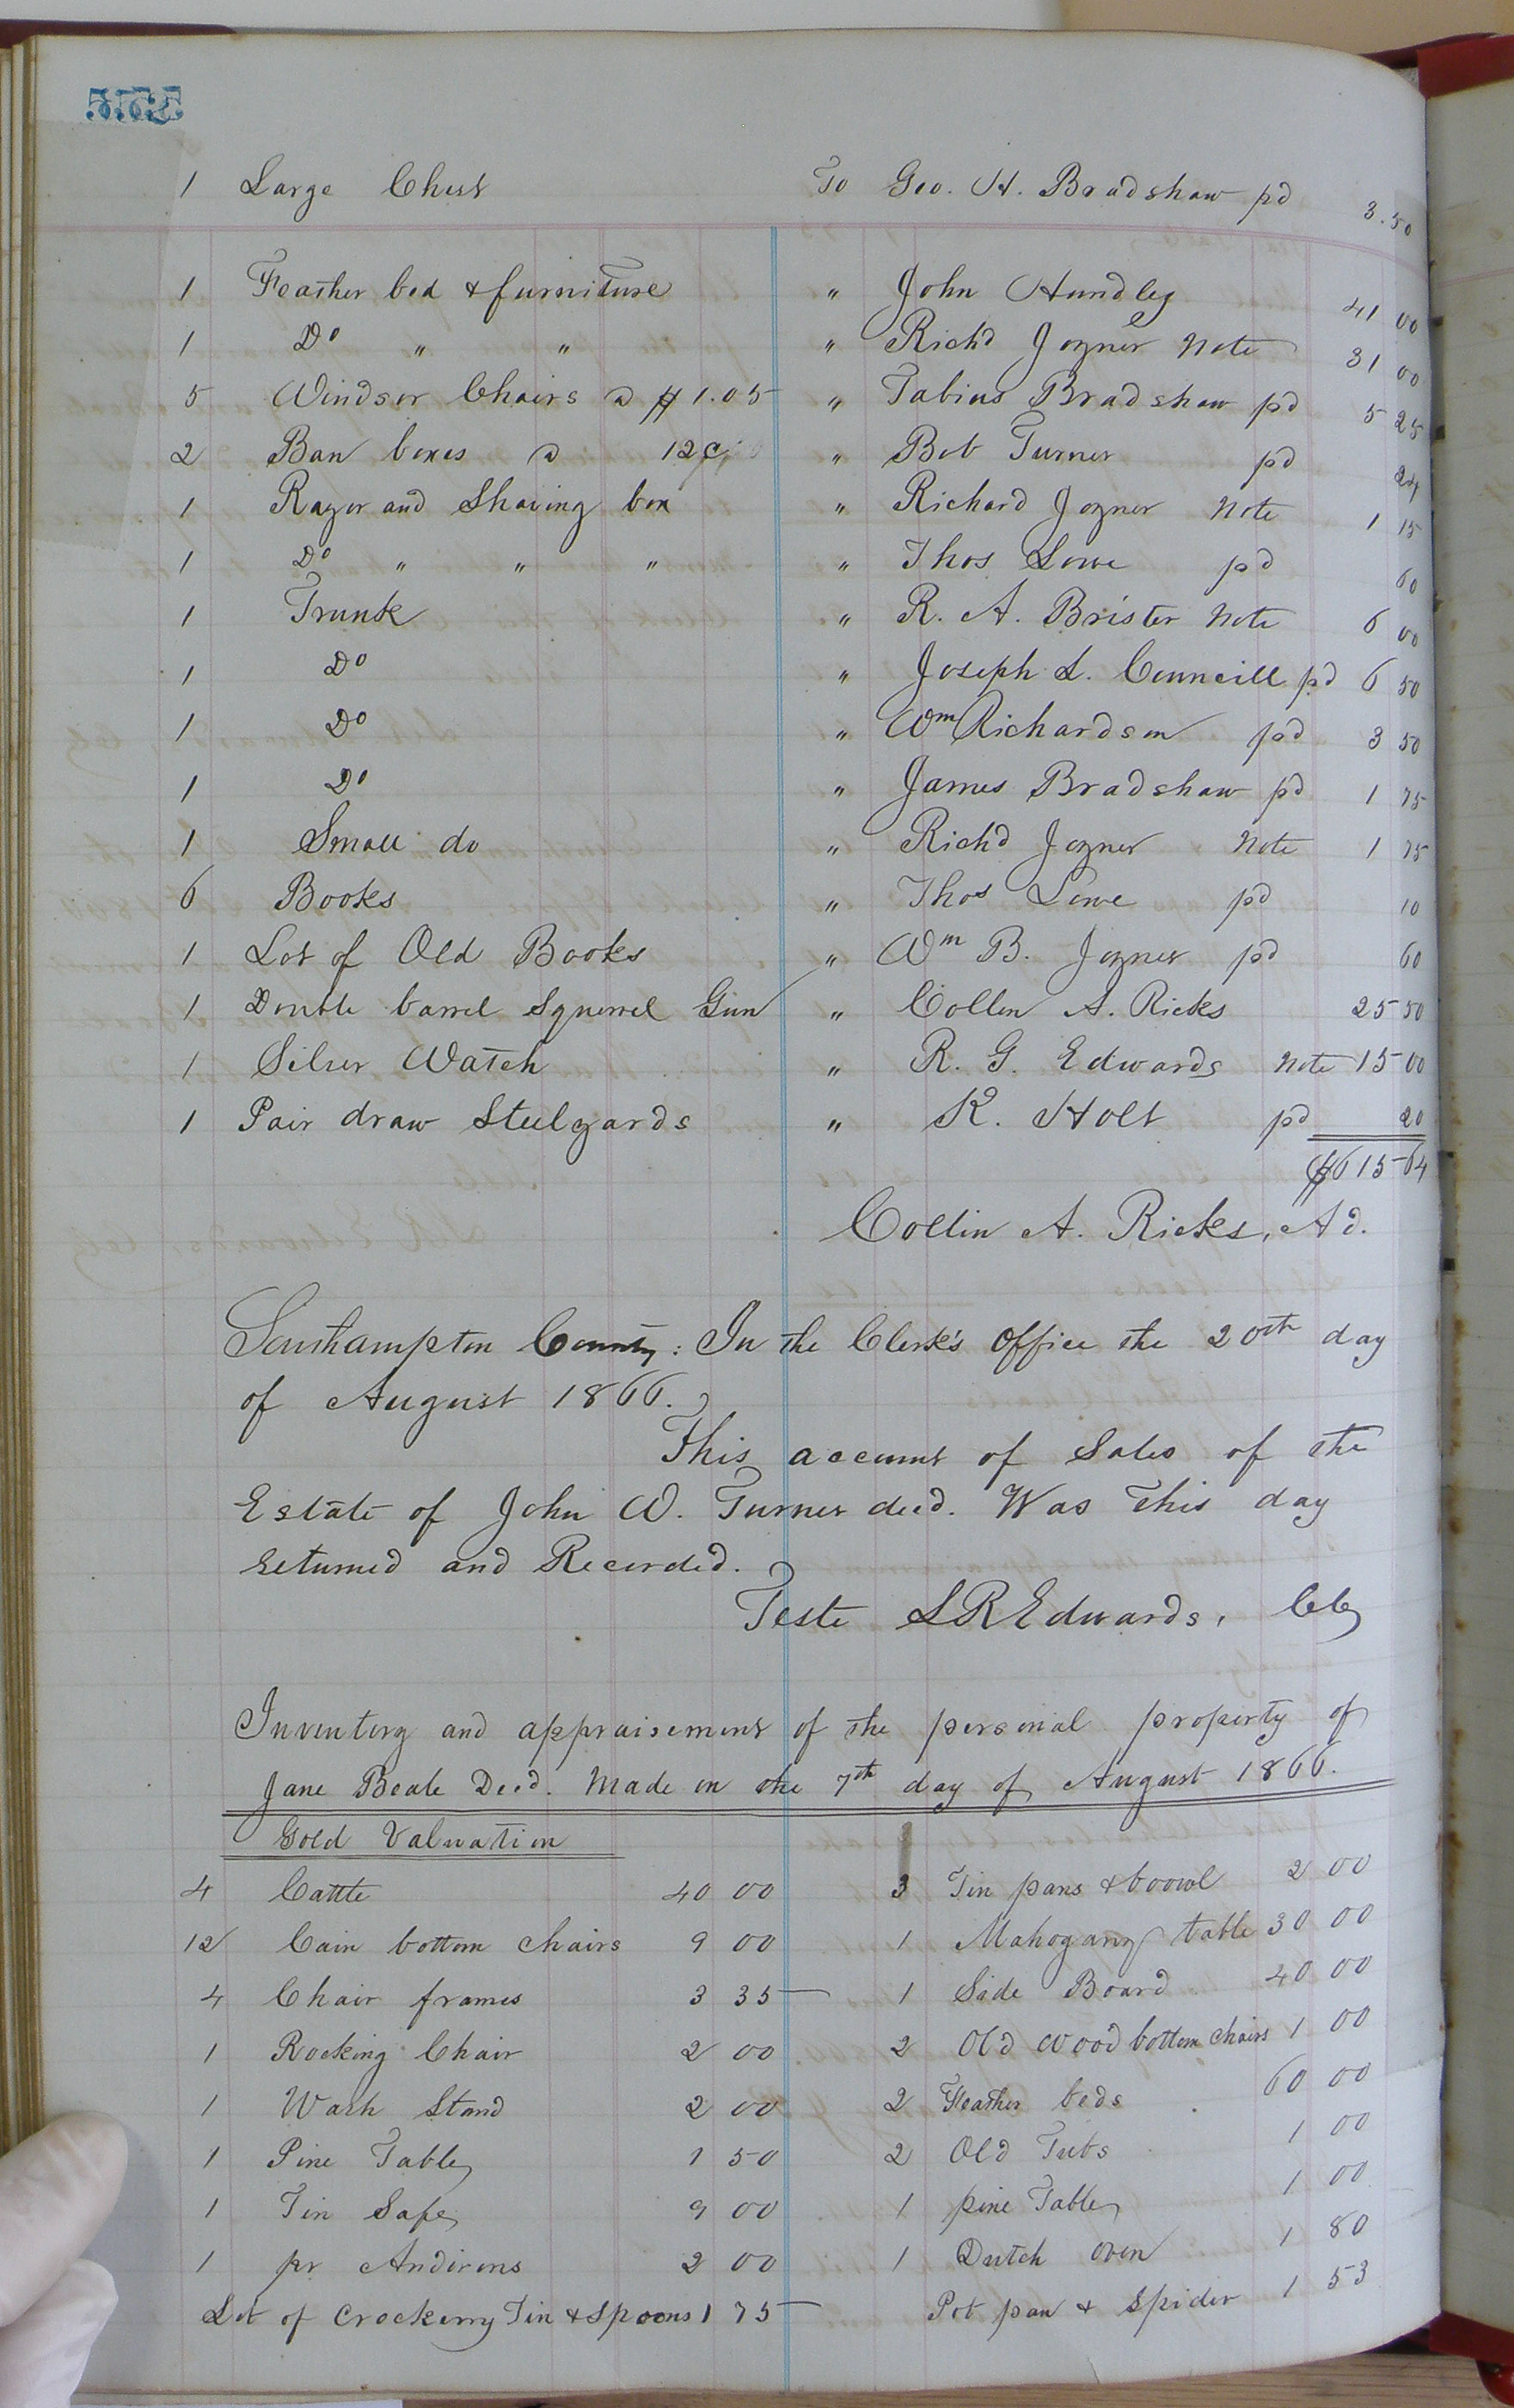 1 Large Chest To Geo. H. Bradshaw pd 3.50
1 Feather bed & furniture " John Hundley 41 00
1 Do " " " Richd Joyner Note 31 00
5 Windsor Chairs @ $1.05 " Fabius Bradshaw pd 5 25
2 Ban boxes @ 12¢ " Bob Turner pd 24
1 Razor and Shaving box " Richard Joyner Note 1 15
1 Do " " " " Thos Lowe pd 60
1 Trunk " R. A. Brister Note 6 00
1 Do " Joseph L. Councill pd 6 50
1 Do " Wm Richardson pd 3 50
1 Do " James Bradshaw pd 1 75
1 Small do " Richd Joyner Note 1 75
6 Books " Thos Lowe pd 10
1 Lot of Old Books " Wm B. Joyner pd 60
1 Double barrel Squirrel Gun " Collin A. Ricks 25 50
1 Silver Watch " R. G. Edwards Note 15 00
1 Pair draw Steelyards " K. Holt pd 20
$615 64
Collin A. Ricks, Ad.
Southampton County: In the Clerk's Office the 20th day
of August 1866.
This account of Sales of the
Estate of John W. Turner decd. Was This day
returned and Recorded.
Teste L R Edwards, Clk
Inventory and appraisement of the personal property of
Jane Beale Decd. Made on the 7th day of August 1866.
Gold Valuation
4 Cattle 40 00 3 Tin pans & boowl 2 00
12 Cain bottom chairs 9 00 1 Mahogany table 30 00
4 Chair frames 3 35 1 Side Board 40 00
1 Rocking Chair 2 00 2 Old Wood bottom chairs 1 00
1 Wash Stand 2 00 2 Feather beds 60 00
1 Pine Table 1 50 2 Old Tubs 1 00
1 Tin Safe 9 00 1 pine Table 1 00
1 pr Andirons 2 00 1 Dutch oven 1 80
Lot of Crockerry Tin & Spoons 1 75 Pot pan & Spider 1 53